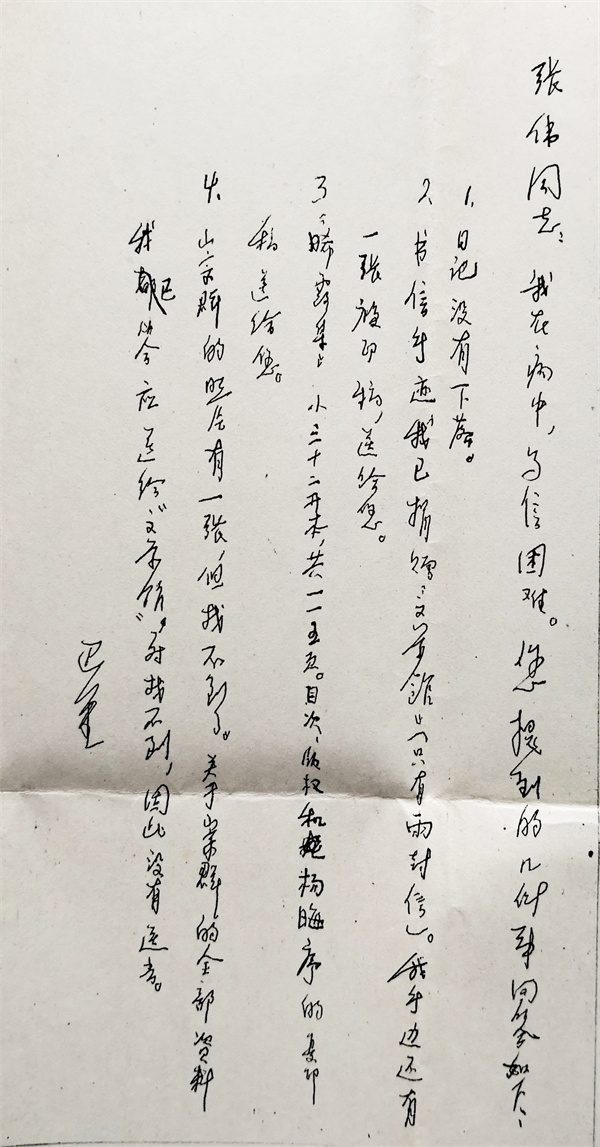 張伟同志：我在病中，写信困难。您提到的几件事回答如下：
1. 日记没有下落。
2. 书信手迹，我已捐赠“文学馆”（只有两封信）。我手边还有
一張複印稿，送给您。
3.《晞露集》小三十二开本，共一一五页。目次、版权和杨晦序的复印
稿送给您。
4. 崇群的照片有一张，但找不到了。关于崇群的全部资料
我都已答应送给“文学馆”，找不到，因此没有送去。
巴金